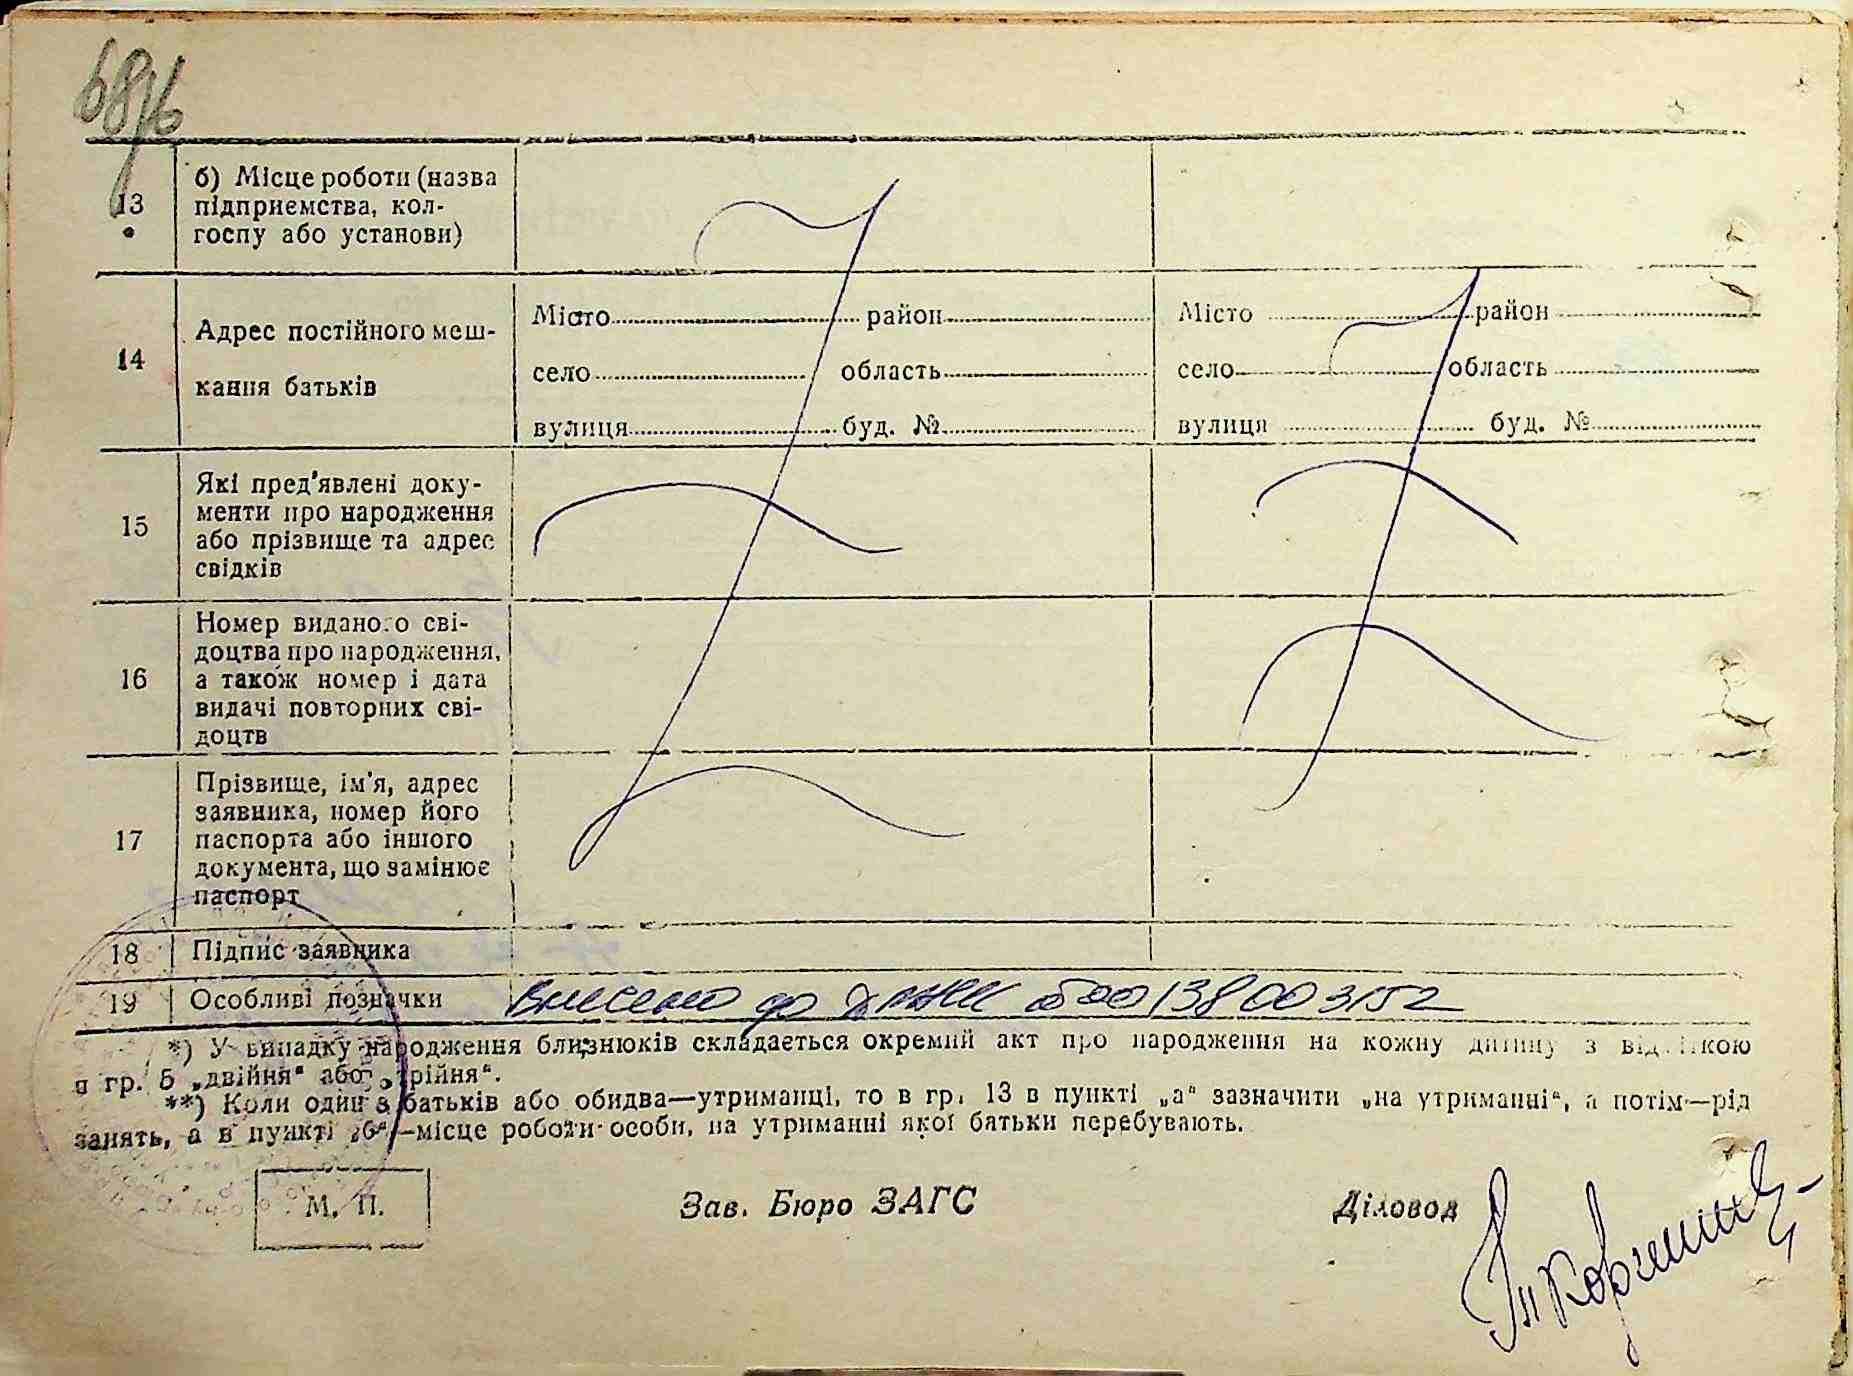 13
б) Місце роботи (назва
підприємства, кол-
госпу або установи)
14
Адрес постійного меш-
кання батьків
Місто район
село область
вулиця буд. №
Місто район
село область
вулиця буд. №
15
Які пред'явлені доку-
менти про народження
або прізвище та адрес
свідків
16
Номер виданого сві-
доцтва про народження,
а також номер і дата
видачі повторних сві-
доцтв
17
Прізвище, ім'я, адрес
заявника, номер його
паспорта або іншого
документа, що замінює
паспорт
18 Підпис заявника
19 Особливі позначки Внесено до 00138003152
*) У випадку народження близнюків складається окремий акт про народження на кожну дитину з відміткою
в гр. 5 „двійня“ або „трійня“.
**) Коли один з батьків або обидва—утриманці, то в гр. 13 в пункті „а“ зазначити „на утриманні“, а потім—рід
занять, а в пункті „б“—місце роботи особи, на утриманні якої батьки перебувають.
М. П. Зав. Бюро ЗАГС Діловод